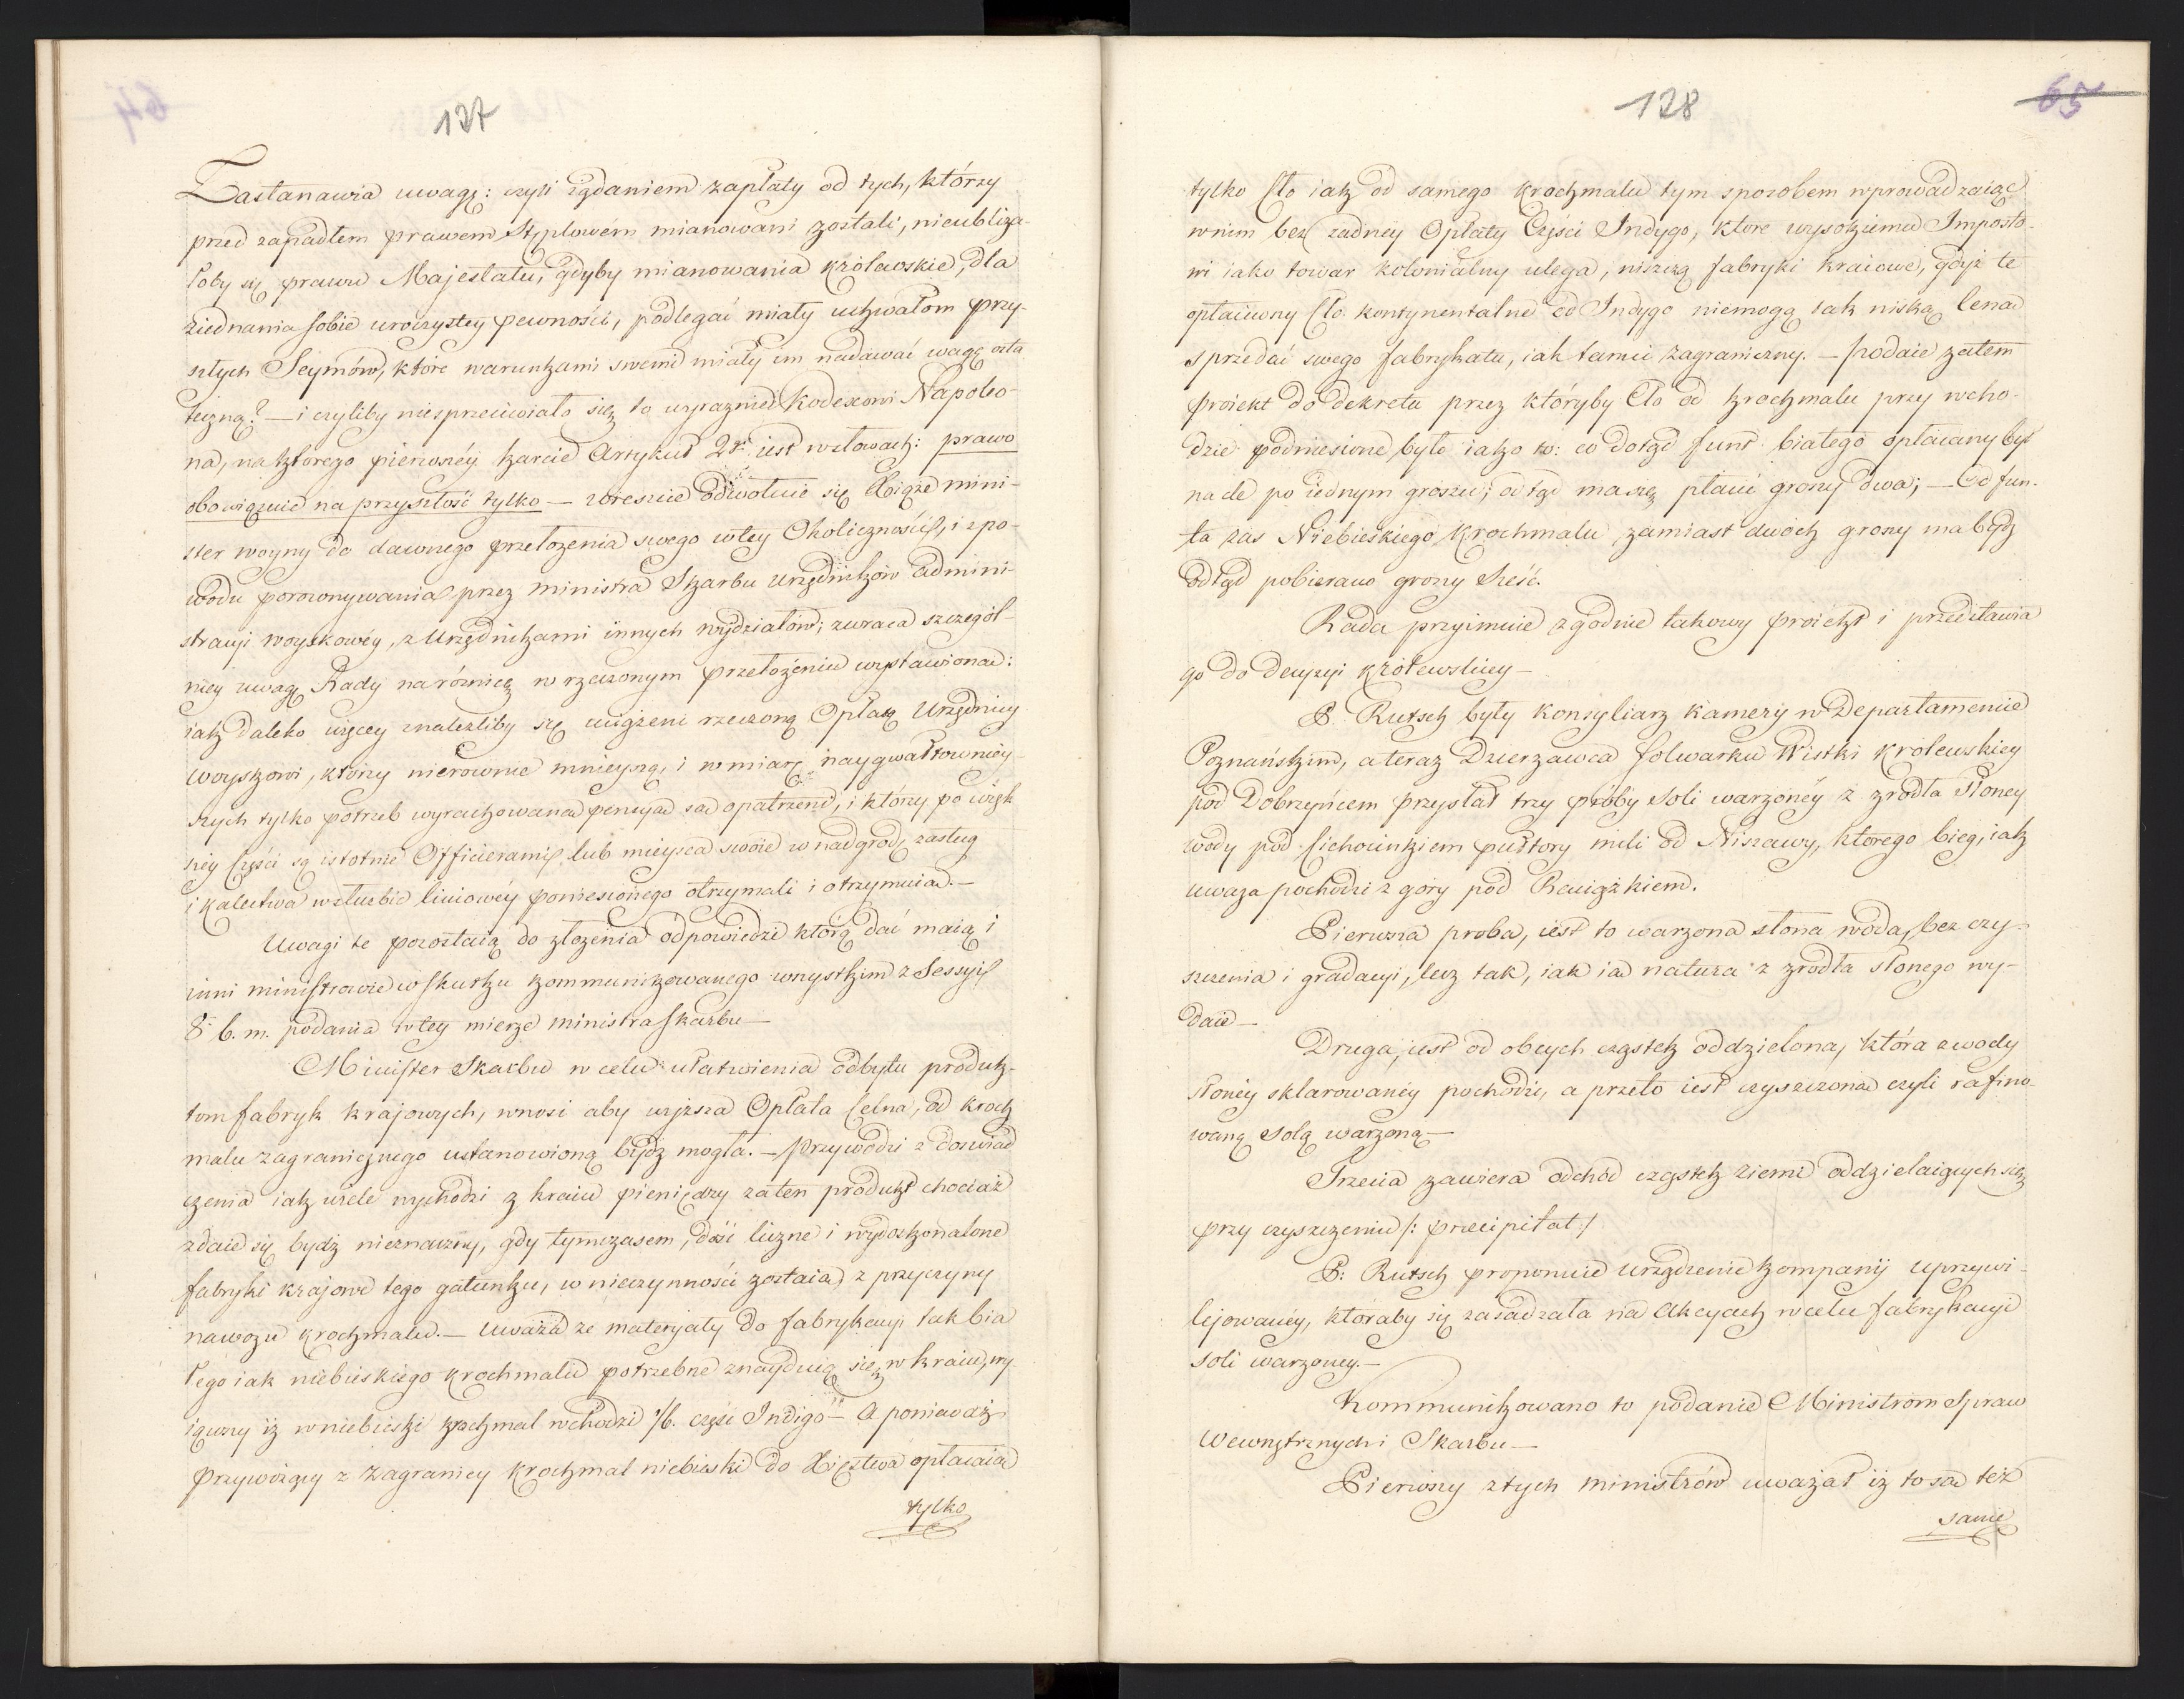 127
Zastanawia uwagę: czyli żądaniem zapłaty od tych, którzy
przed zapadłem prawem Stęplowém mianowani zostali, nieubliża-
łoby się prawu Majestatu, gdyby mianowania królewskie, dla
ziednania sobie uroczystey pewności, podlegać miały uchwałom przy-
szłych Seymów, które warunkami swemi miały im nadawać wagę osta
teczną? — i czyliby niesprzeciwiało się to wyraźnie Kodexowi Napoleo-
na, na którego pierwszéy karcie Artykuł 2gi iest w słowach: prawo
obowiązuie na przyszłość tylko — wreszcie odwołuie się Xiąże mini-
ster woyny do dawnego przełożenia swego w tey Okoliczności, i z po-
wodu porównywania przez ministra Skarbu Urzędników admini-
stracyi woyskowéy, z Urzędnikami innych wydziałów; zwraca szczegól-
niey uwagę Rady na różnicę w rzeczonym przełożeniu wystawioną:
iak daleko więcey znaleźliby się uciążeni rzeczoną Opłatą Urzędnicy
woyskowi, którzy nierównie mnieyszą, i w miarę naygwałtowniéy-
szych tylko potrzeb wyrachowaną pensyą są opatrzeni, i którzy po więk
széy Części są istotnie Officierami lub mieysca swoie w nadgrodę zasług
i kalectwa w służbie liniowéy poniesionego otrzymali i otrzymuią. —
Uwagi te pozostaią do złożenia odpowiedzi którą dać maią i
inni ministrowie w skutku kommunikowanego wszystkim z Sessyi
8 b. m. podania w tey mierze ministra Skarbu —
Minister Skarbu w celu ułatwienia odbytu produk-
tom fabryk krajowych, wnosi aby wyższa Opłata Celna, od kroch
malu zagranicznego ustanowioną bydź mogła. — Przywodzi z doswiad
czenia iak wiele wychodzi z kraiu pieniędzy za ten produkt chociaż
zdaie się bydź nieznaczny, gdy tymczasem, dość liczne i wydoskonalone
fabryki krajowe tego gatunku, w nieczynności zostaią z przyczyny
nawozu krochmalu. — Uważa że materyały do fabrykacyi tak bia
łego iak niebieskiego krochmalu potrzebne znayduią się w kraiu, wy
iąwszy iż w niebieski krochmal wchodzi 1/6. część Indigo — A ponieważ
Przywożący z zagranicy krochmal niebieski do Xięstwa opłacaią
tylko
128
65
tylko Cło iak od samego krochmalu tym sposobem wprowadzaiąc
w nim bez żadney Opłaty Części Indygo, które wysokiemu Imposto-
wi iako towar kolonialny ulega, niszczą fabryki kraiowe, gdyż te
opłaciwszy Cło kontynentalne od Indygo niemogą tak niską Ceną
sprzedać swego fabrykatu, iak tamci zagraniczny. — Podaie zatem
proiekt do dekretu przez któryby Cło od krochmalu przy wcho-
dzie podniesione było iako to: co dotąd funt białego opłacany był
na cle po iednym groszu, odtąd ma się płacić groszy dwa; — Od fun-
ta zas Niebieskiego Krochmalu zamiast dwóch groszy ma bydź
odtąd pobierano groszy Sześć.
Rada przyimuie zgodnie takowy proiekt i przedstawia
go do decyzyi królewskiey —
P. Rutsch były Konsyliarz Kamery w Departamencie
Poznańskim, a teraz Dzierzawca folwarku Wistki Krolewskiey
pod Dobrzyńcem przysłał trzy próby Soli warzonéy z źrodła Słoney
wody pod Ciechocinkiem pułtory mili od Niszawy, którego bieg, iak
uwaza pochodzi z góry pod Raciążkiem.
Pierwsza proba, iest to warzona słona woda, bez czy-
szczenia i gradacyi, lecz tak, iak ią natura z zrodła słonego wy-
daie —
Druga, iest od obcych cząstek oddzielona, która z wody
słonéy sklarowanéy pochodzi, a przeto iest czyszczoną czyli rafino-
waną Solą warzoną —
Trzecia zawiera odchód cząstek ziemi oddzielaiących się
przy czyszczeniu /: precipitat :/
P: Rutsch proponuie urządzenie kompanij uprzywi-
lejowanéy, któraby się zasadzała na Akcyach w celu fabrykacyi
soli warzoney. —
Kommunikowano to podanie Ministrom Spraw
Wewnętrznych i Skarbu —
Pierwszy z tych ministrów uważał iż to są téż
same